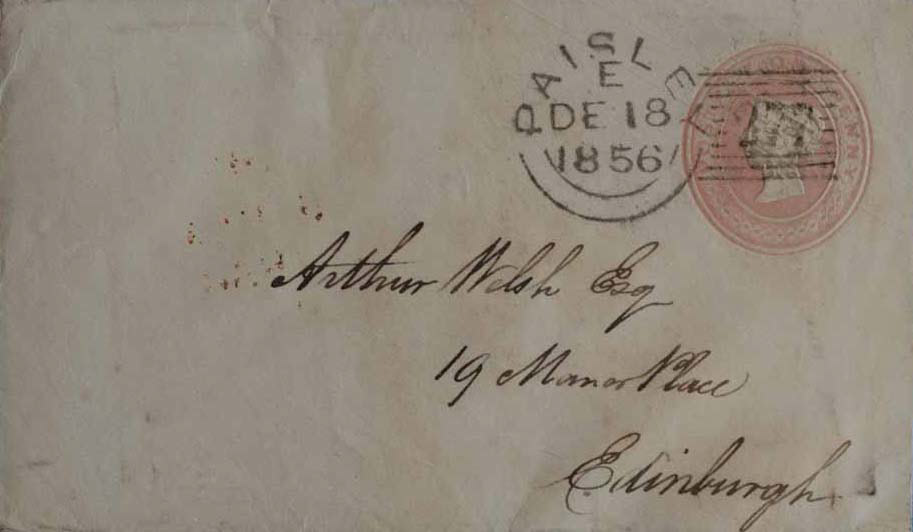 PAISLEY
E
DE 18
1856
Arthur Welsh Esq
19 Manor Place
Edinburgh